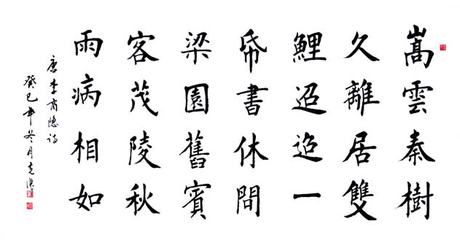 嵩雲秦樹
久離居雙
鯉迢迢一
帋書休問
梁園舊賓
客茂陵秋
雨病相如
唐李商隱詩
癸巳年冬月